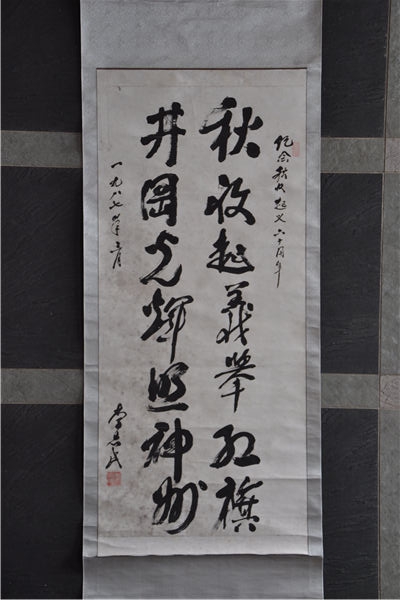 纪念秋收起义六十周年
秋收起義举红旗
井岡光輝照神州
一九八七年
李志民